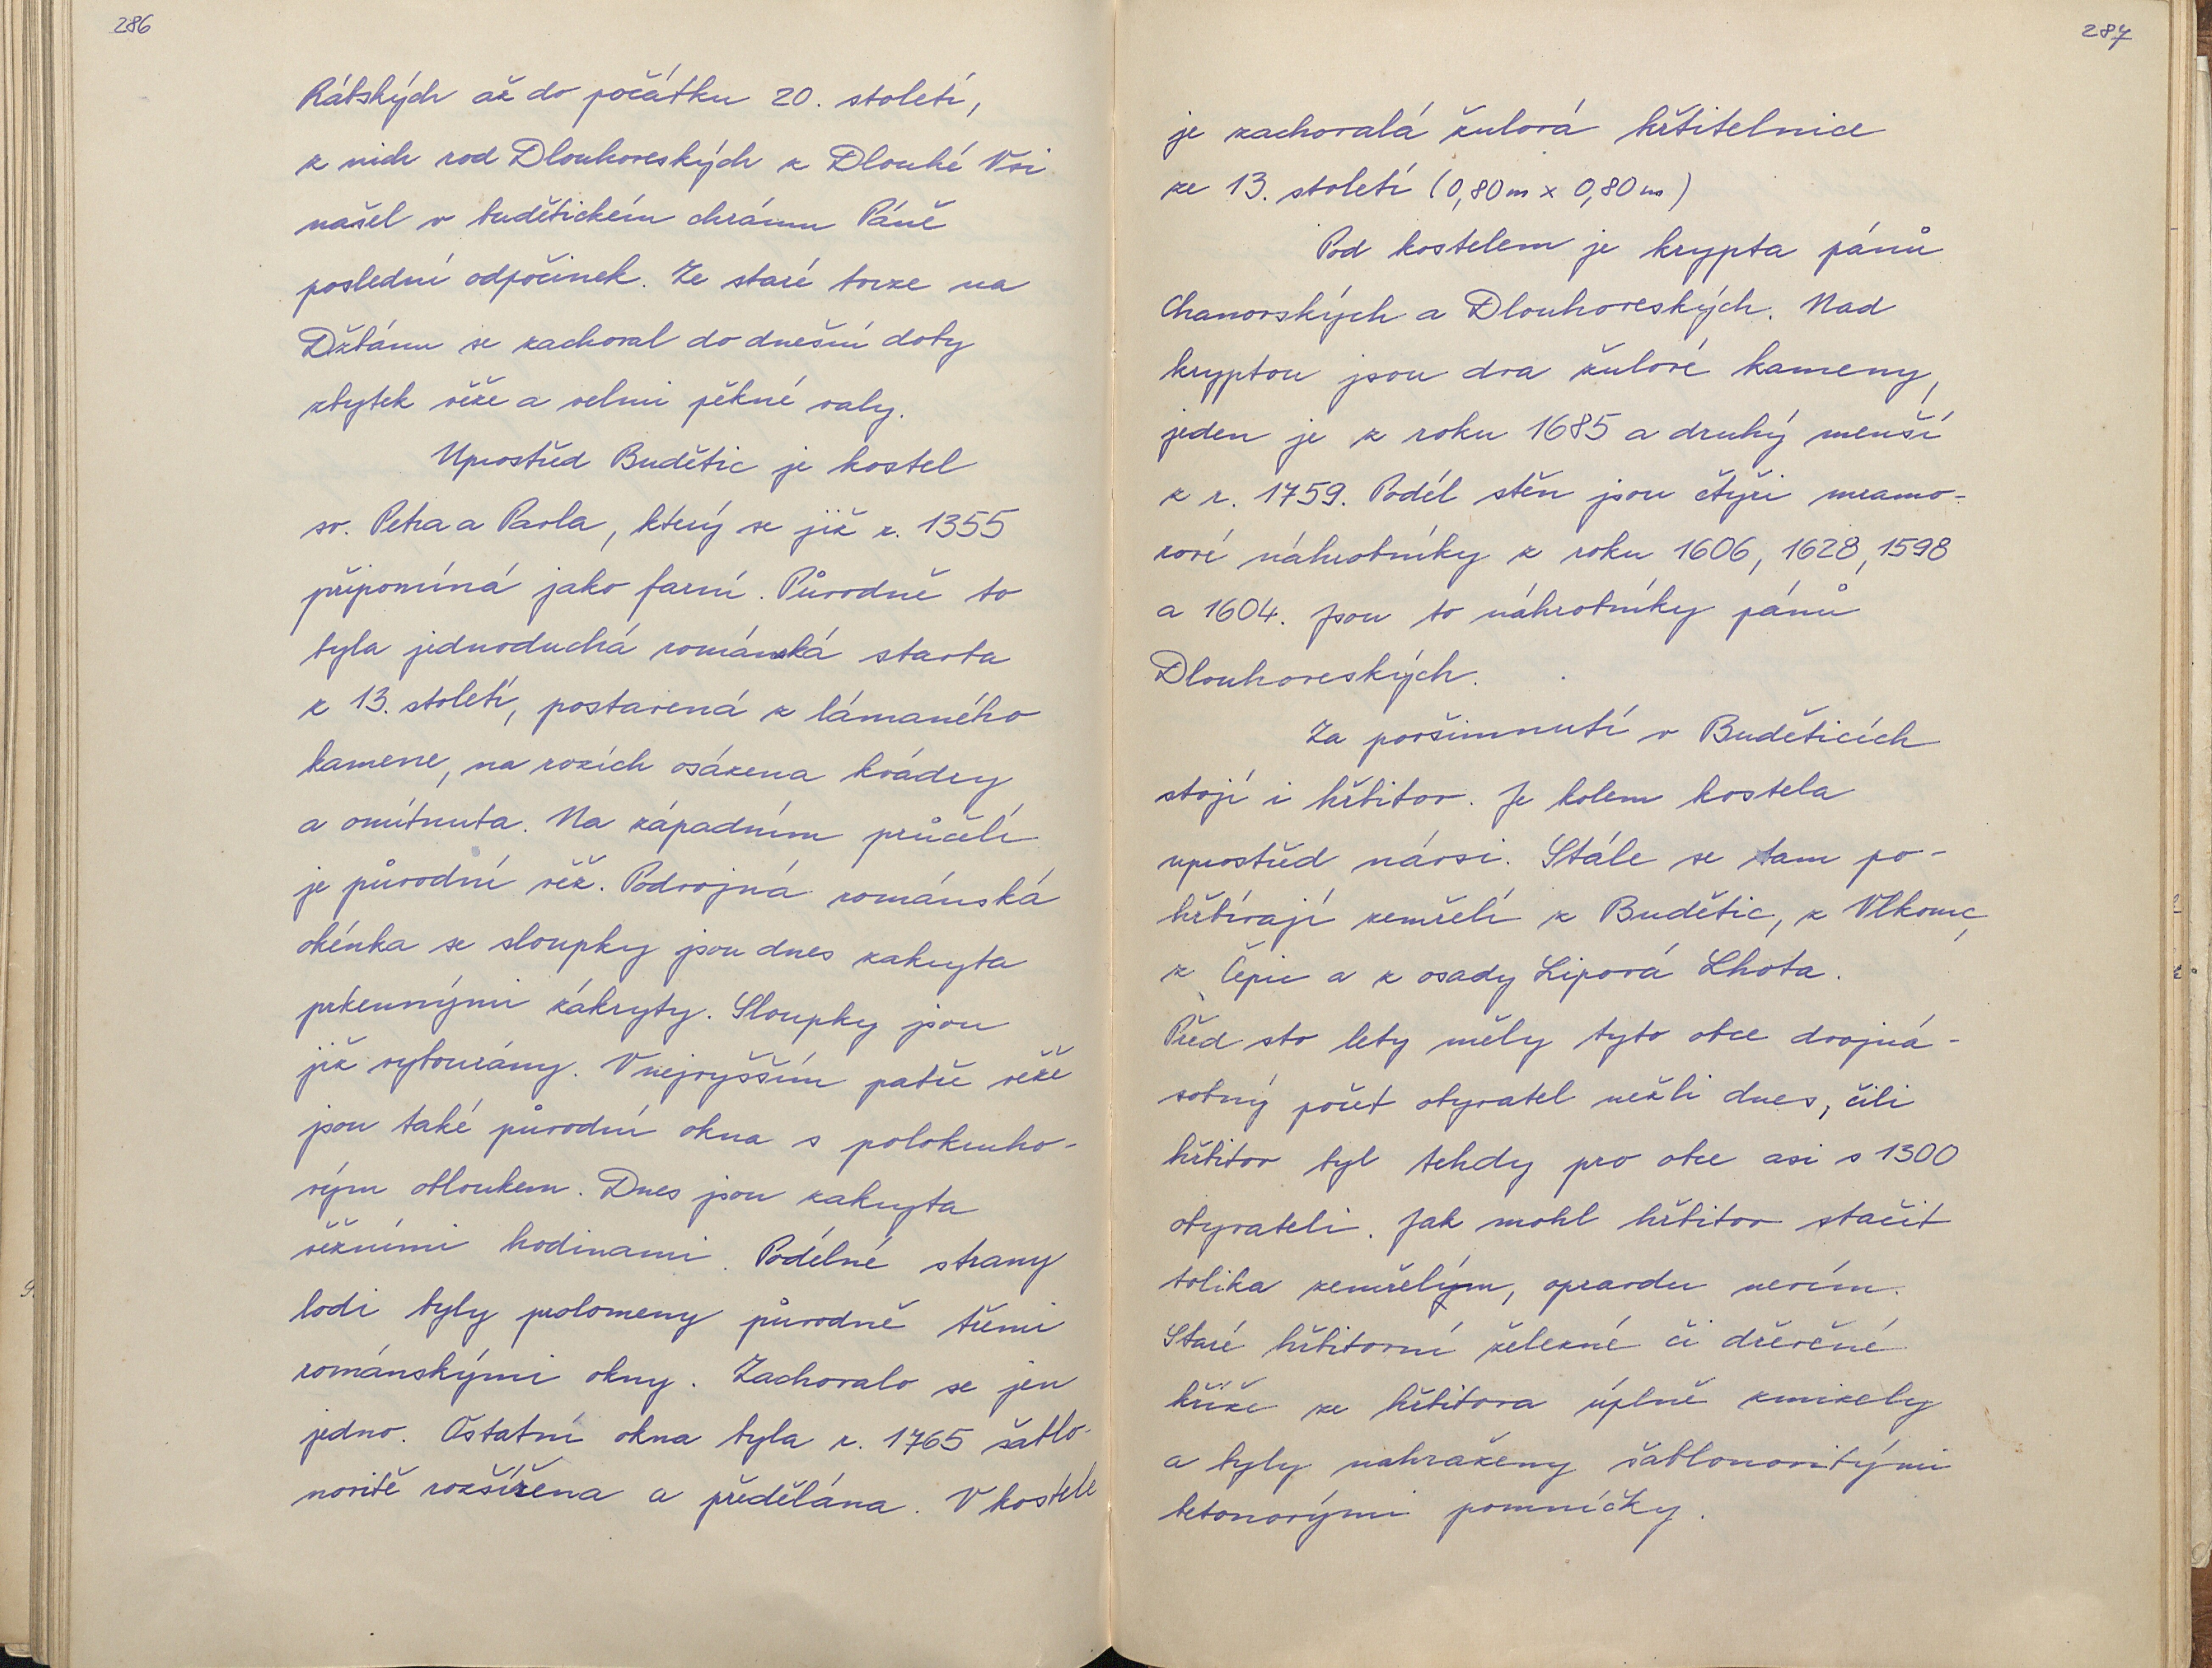 286
Rábských až do počátku 20. století,
z nich rod Dlouhoveských z Dlouhé Vsi
našel v budětickém chrámu Páně
poslední odpočinek. Ze staré tvrze na
Džbánu se zachoval do dnešní doby
zbytek věže a velmi pěkné valy.
Uprostřed Budětic je kostel
sv. Petra a Pavla, který se již r. 1355
připomíná jako farní. Původně to
byla jednoduchá románská stavba
z 13. století, postavená z lámaného
kamene, na rozích osázena kvádry
a omítnuta. Na západním průčelí
je původní věž. Podvojná románská
okénka se sloupky jsou dnes zakryta
prkennými zákryty. Sloupky jsou
již vybourány. V nejvyšším patře věže
jsou také původní okna s polokruho-
vým obloukem. Dnes jsou zakryta
věžními hodinami. Podélné strany
lodi byly prolomeny původně třemi
románskými okny. Zachovalo se jen
jedno. Ostatní okna byla r. 1765 šablo-
novitě rozšířena a předělána. V kostele
287
je zachovalá žulová křtitelnice
ze 13. století (0,80 m x 0,80 m)
Pod kostelem je krypta pánů
Chanovských a Dlouhoveských. Nad
kryptou jsou dva žulové kameny,
jeden je z roku 1685 a druhý menší
z r. 1759. Podél stěn jsou čtyři mramo-
rové náhrobníky z roku 1606, 1628, 1598
a 1604. Jsou to náhrobníky pánů
Dlouhoveských.
Za povšimnutí v Buděticích
stojí i hřbitov. Je kolem kostela
uprostřed návsi. Stále se tam po-
hřbívají zemřelí z Budětic, z Vlkonic,
z Čepic a z osady Lipová Lhota.
Před sto lety měly tyto obce dvojná-
sobný počet obyvatel nežli dnes, čili
hřbitov byl tehdy pro obce asi s 1300
obyvateli. Jak mohl hřbitov stačit
tolika zemřelým, opravdu nevím.
Staré hřbitovní železné či dřevěné
kříže ze hřbitova úplně zmizely
a byly nahraženy šablonovitými
betonovými pomníčky.